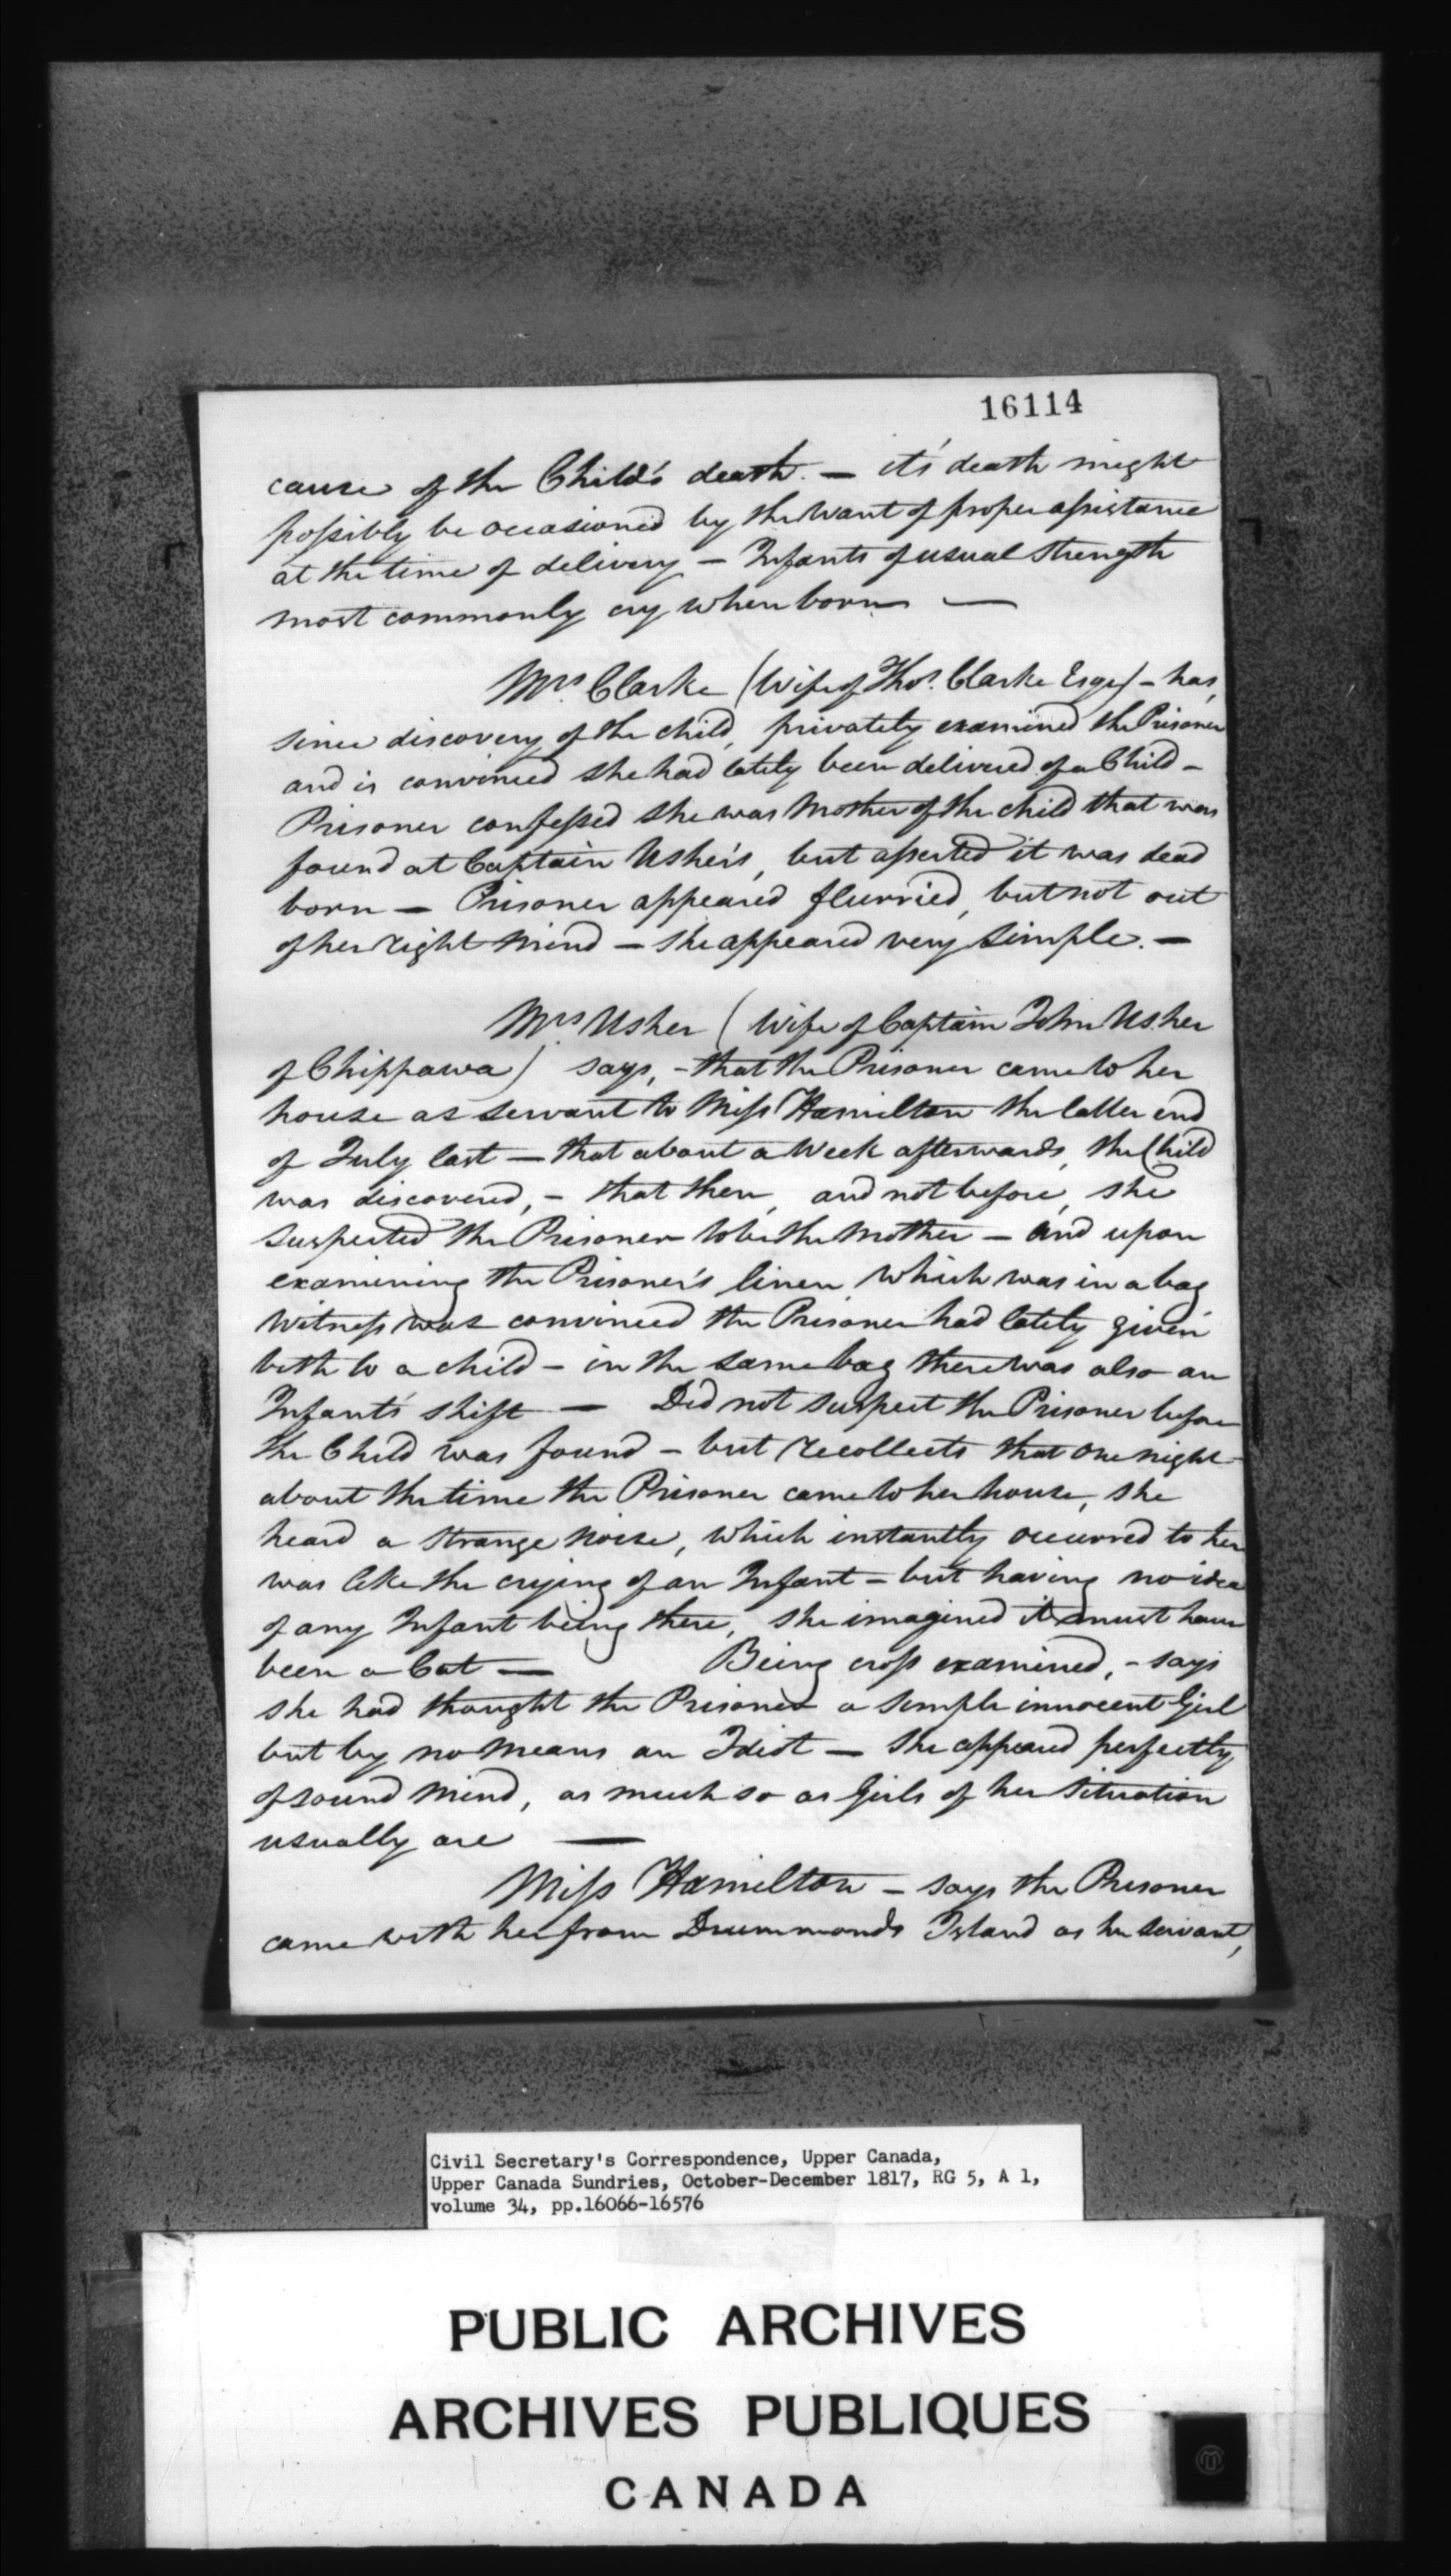 16114
cause of the Child's death. — it's death might
possibly be occasioned by the want of proper assistance
at the time of delivery — Infants of usual strength
most commonly cry when born —
Mrs. Clarke (Wife of Thos. Clarke Esqr) — has,
since discovery of the child, privately examined the Prisoner
and is convinced she had lately been delivered of a Child —
Prisoner confessed she was Mother of the child that was
found at Captain Usher's, but asserted it was dead
born — Prisoner appeared flurried, but not out
of her right Mind — she appeared very Simple. —
Mrs. Usher (Wife of Captain John Usher
of Chippawa) says, — that the Prisoner came to her
house as servant to Miss Hamilton the latter end
of July last — that about a Week afterwards, the Child
was discovered, — that then, and not before, she
suspected the Prisoner to be the Mother — And upon
examining the Prisoner's linen which was in a bag
Witness was convinced the Prisoner had lately given
birth to a child — in the same bag there was also an
Infants' shift — Did not suspect the Prisoner before
the Child was found — but recollects that one night
about the time the Prisoner came to her house, she
heard a strange Noise, which instantly occurred to her
was like the crying of an Infant — but having no idea
of any Infant being there, she imagined it must have
been a Cat — Being cross examined, — says
she had thought the Prisoner a simple innocent Girl
but by no Means an Idiot — she appeared perfectly
of sound Mind, as much so as Girls of her Situation
usually are —
Miss Hamilton — says the Prisoner
came with her from Drummonds Island as her servant,
Civil Secretary's Correspondence, Upper Canada,
Upper Canada Sundries, October-December 1817, RG 5, A 1,
volume 34, pp.16066-16576
PUBLIC ARCHIVES
ARCHIVES PUBLIQUES
CANADA